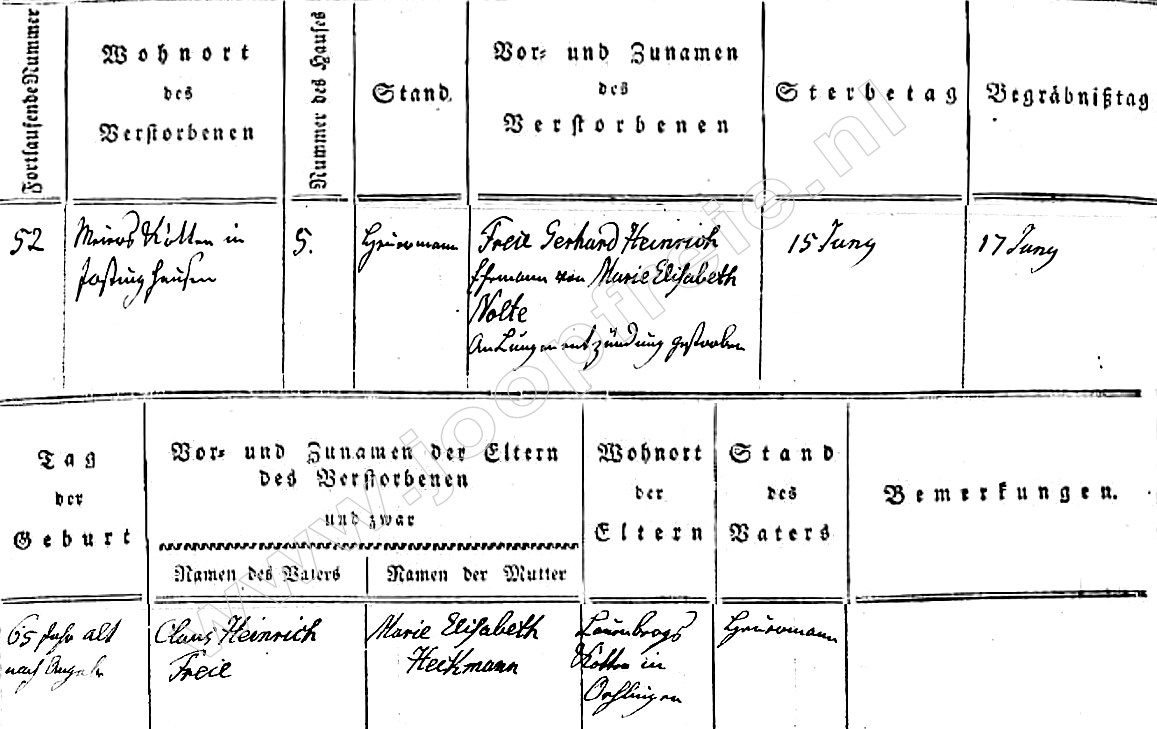 Fortlaufende Nummer
Wohnort
des
Verstorbenen
Nummer des Hauses
Stand
Vor- und Zunamen
des
Verstorbenen
Sterbetag
Begräbnißtag
52
Meiers Kotten in
5.
Heuermann
Freie Gerhard Heinrich
Ehemann von Marie Elisabeth
Nolte
An Lungenentzündung gestorben
15 Juny
17 Juny
Tag
der
Geburt
Vor- und Zunamen der Eltern
des Verstorbenen
und zwar
Namen des Vaters
Namen der Mutter
Wohnort
der
Eltern
Stand
des
Vaters
Bemerkungen.
65 Jahr alt
nach Angabe
Claus Heinrich
Freie
Marie Elisabeth
Heckmann
Kotten in
Heuermann
www.joopfreie.nl